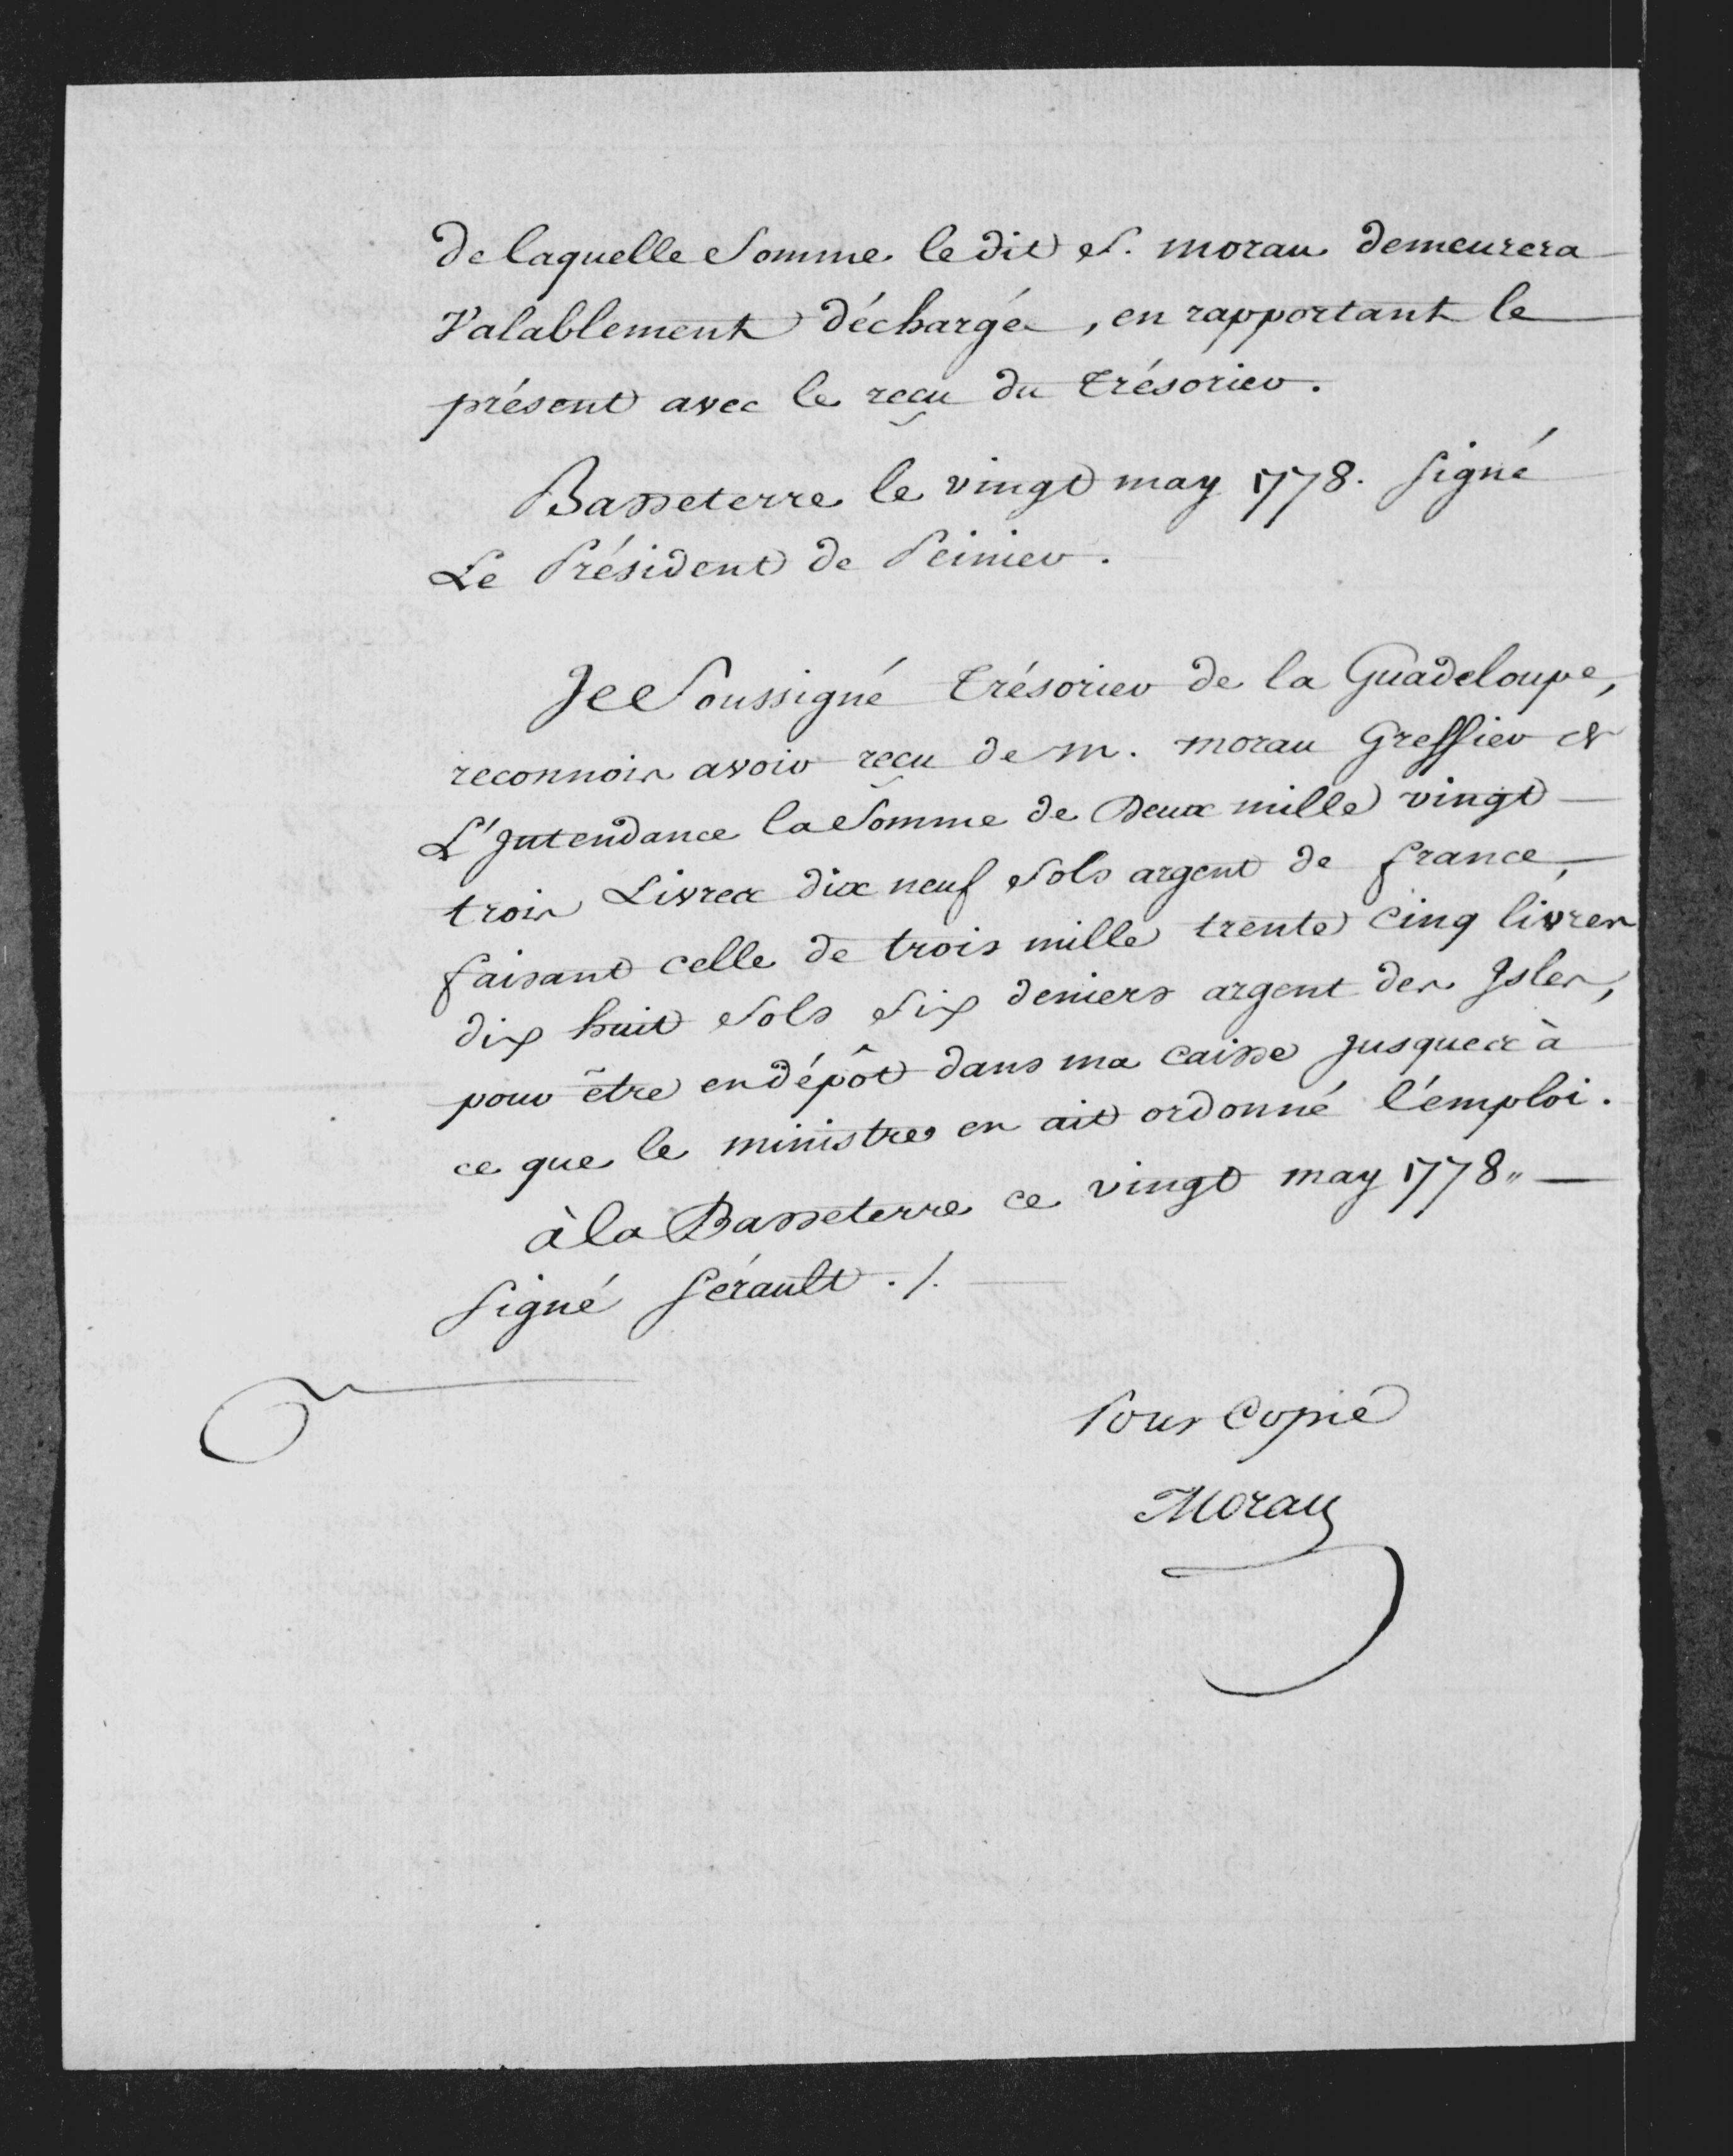 de laquelle Somme le dit S. morau demeurera
Valablement déchargé, en rapportant le
présent avec le reçu du trésorier.
Basseterre le vingt may 1778. Signé
Le Président de Peinier.
Je Soussigné trésorier de la Guadeloupe,
reconnois avoir reçu de M. morau Greffier de
L'Intendance la Somme de Deux mille vingt
trois Livres dix neuf Sols argent de france,
faisant celle de trois mille trente cinq livres
dix huit Sols Six deniers argent des Isles,
pour être en dépôt dans ma caisse jusques à
ce que le ministre en ait ordonné l'émploi.
à la Basseterre ce vingt may 1778 "
Signé Sérault ./.
Pour Copie
Morau